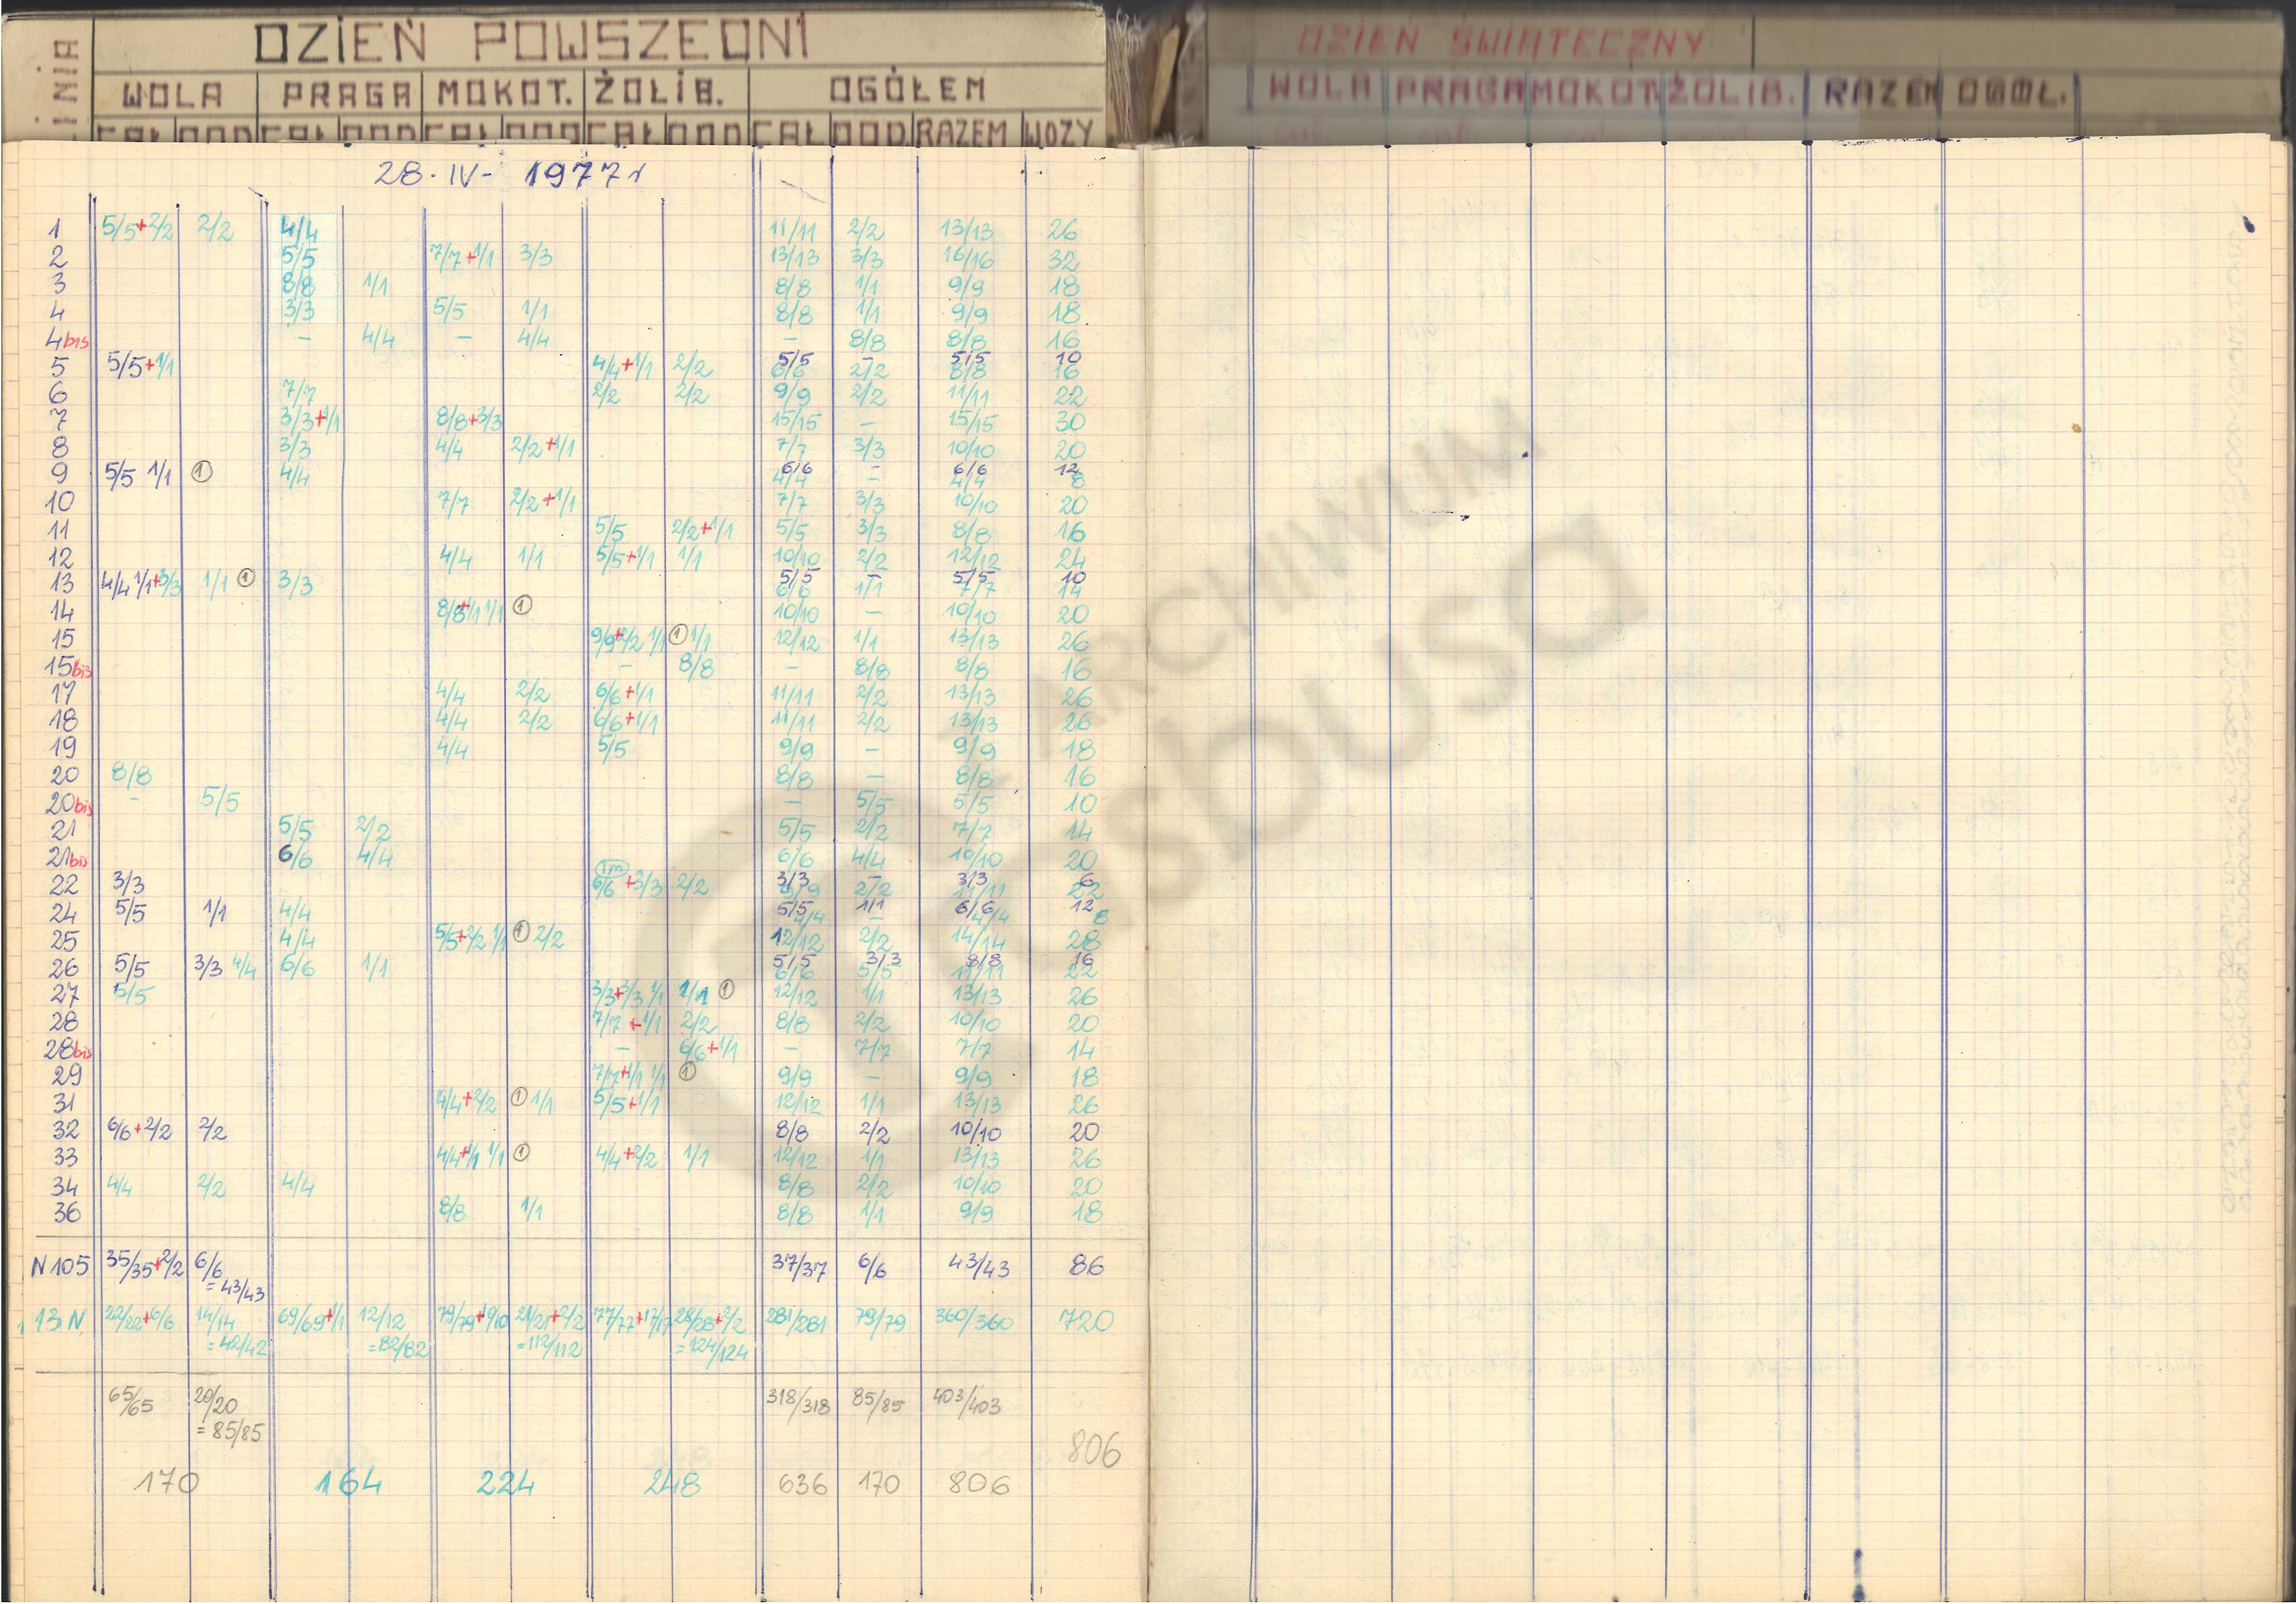 DZIEŃ POWSZEDNI
DZIEŃ ŚWIĄTECZNY
LINIA
WOLA PRAGA MOKOT. ŻOLIB. OGÓŁEM
WOLA PRAGA MOKOT. ŻOLIB. RAZEM OGÓŁ.
CAŁ DOD CAŁ DOD CAŁ DOD CAŁ DOD CAŁ DOD. RAZEM WOZY
28-IV-1977r
1 5/5+2/2 2/2 4/4 11/11 2/2 13/13 26
2 5/5 7/7+1/1 3/3 13/13 3/3 16/16 32
3 8/8 1/1 8/8 1/1 9/9 18
4 3/3 5/5 1/1 8/8 1/1 9/9 18
4bis - 4/4 - 4/4 - 8/8 8/8 16
5 5/5+1/1 4/4+1/1 2/2 5/5 - 5/5 10
6/6 2/2 8/8 16
6 7/7 2/2 2/2 9/9 2/2 11/11 22
7 3/3+1/1 8/8+3/3 15/15 - 15/15 30
8 3/3 4/4 2/2+1/1 7/7 3/3 10/10 20
9 5/5 1/1 ① 4/4 6/6 - 6/6 12
4/4 - 4/4 8
10 7/7 2/2+1/1 7/7 3/3 10/10 20
11 5/5 2/2+1/1 5/5 3/3 8/8 16
12 4/4 1/1 5/5+1/1 1/1 10/10 2/2 12/12 24
13 4/4 1/1+3/3 1/1 ① 3/3 5/5 - 5/5 10
6/6 1/1 7/7 14
14 8/8+1/1 1/1 ① 10/10 - 10/10 20
15 9/9+2/2 1/1 ① 1/1 12/12 1/1 13/13 26
15bis - 8/8 - 8/8 8/8 16
17 4/4 2/2 6/6+1/1 11/11 2/2 13/13 26
18 4/4 2/2 6/6+1/1 11/11 2/2 13/13 26
19 4/4 5/5 9/9 - 9/9 18
20 8/8 8/8 - 8/8 16
20bis - 5/5 - 5/5 5/5 10
21 5/5 2/2 5/5 2/2 7/7 14
21bis 6/6 4/4 6/6 4/4 10/10 20
1m
22 3/3 6/6+3/3 2/2 3/3 - 3/3 6
9/9 2/2 11/11 22
24 5/5 1/1 4/4 5/5 1/1 6/6 12
4/4 - 4/4 8
25 4/4 5/5+2/2 1/1 ① 2/2 12/12 2/2 14/14 28
26 5/5 3/3 4/4 6/6 1/1 5/5 3/3 8/8 16
6/6 5/5 11/11 22
27 5/5 3/3+3/3 1/1 1/1 ① 12/12 1/1 13/13 26
28 7/7+1/1 2/2 8/8 2/2 10/10 20
28bis - 6/6+1/1 - 7/7 7/7 14
29 7/7+1/1 1/1 ① 9/9 - 9/9 18
31 4/4+2/2 ① 1/1 5/5+1/1 12/12 1/1 13/13 26
32 6/6+2/2 2/2 8/8 2/2 10/10 20
33 4/4+1/1 1/1 ① 4/4+2/2 1/1 12/12 1/1 13/13 26
34 4/4 2/2 4/4 8/8 2/2 10/10 20
36 8/8 1/1 8/8 1/1 9/9 18
N105 35/35+2/2 6/6 37/37 6/6 43/43 86
= 43/43
13N 22/22+6/6 14/14 69/69+1/1 12/12 79/79+10/10 21/21+2/2 77/77+17/17 28/28+2/2 281/281 79/79 360/360 720
= 42/42 = 82/82 = 112/112 = 124/124
65/65 20/20 318/318 85/85 403/403
= 85/85
806
170 164 224 248 636 170 806
ARCHIWUM